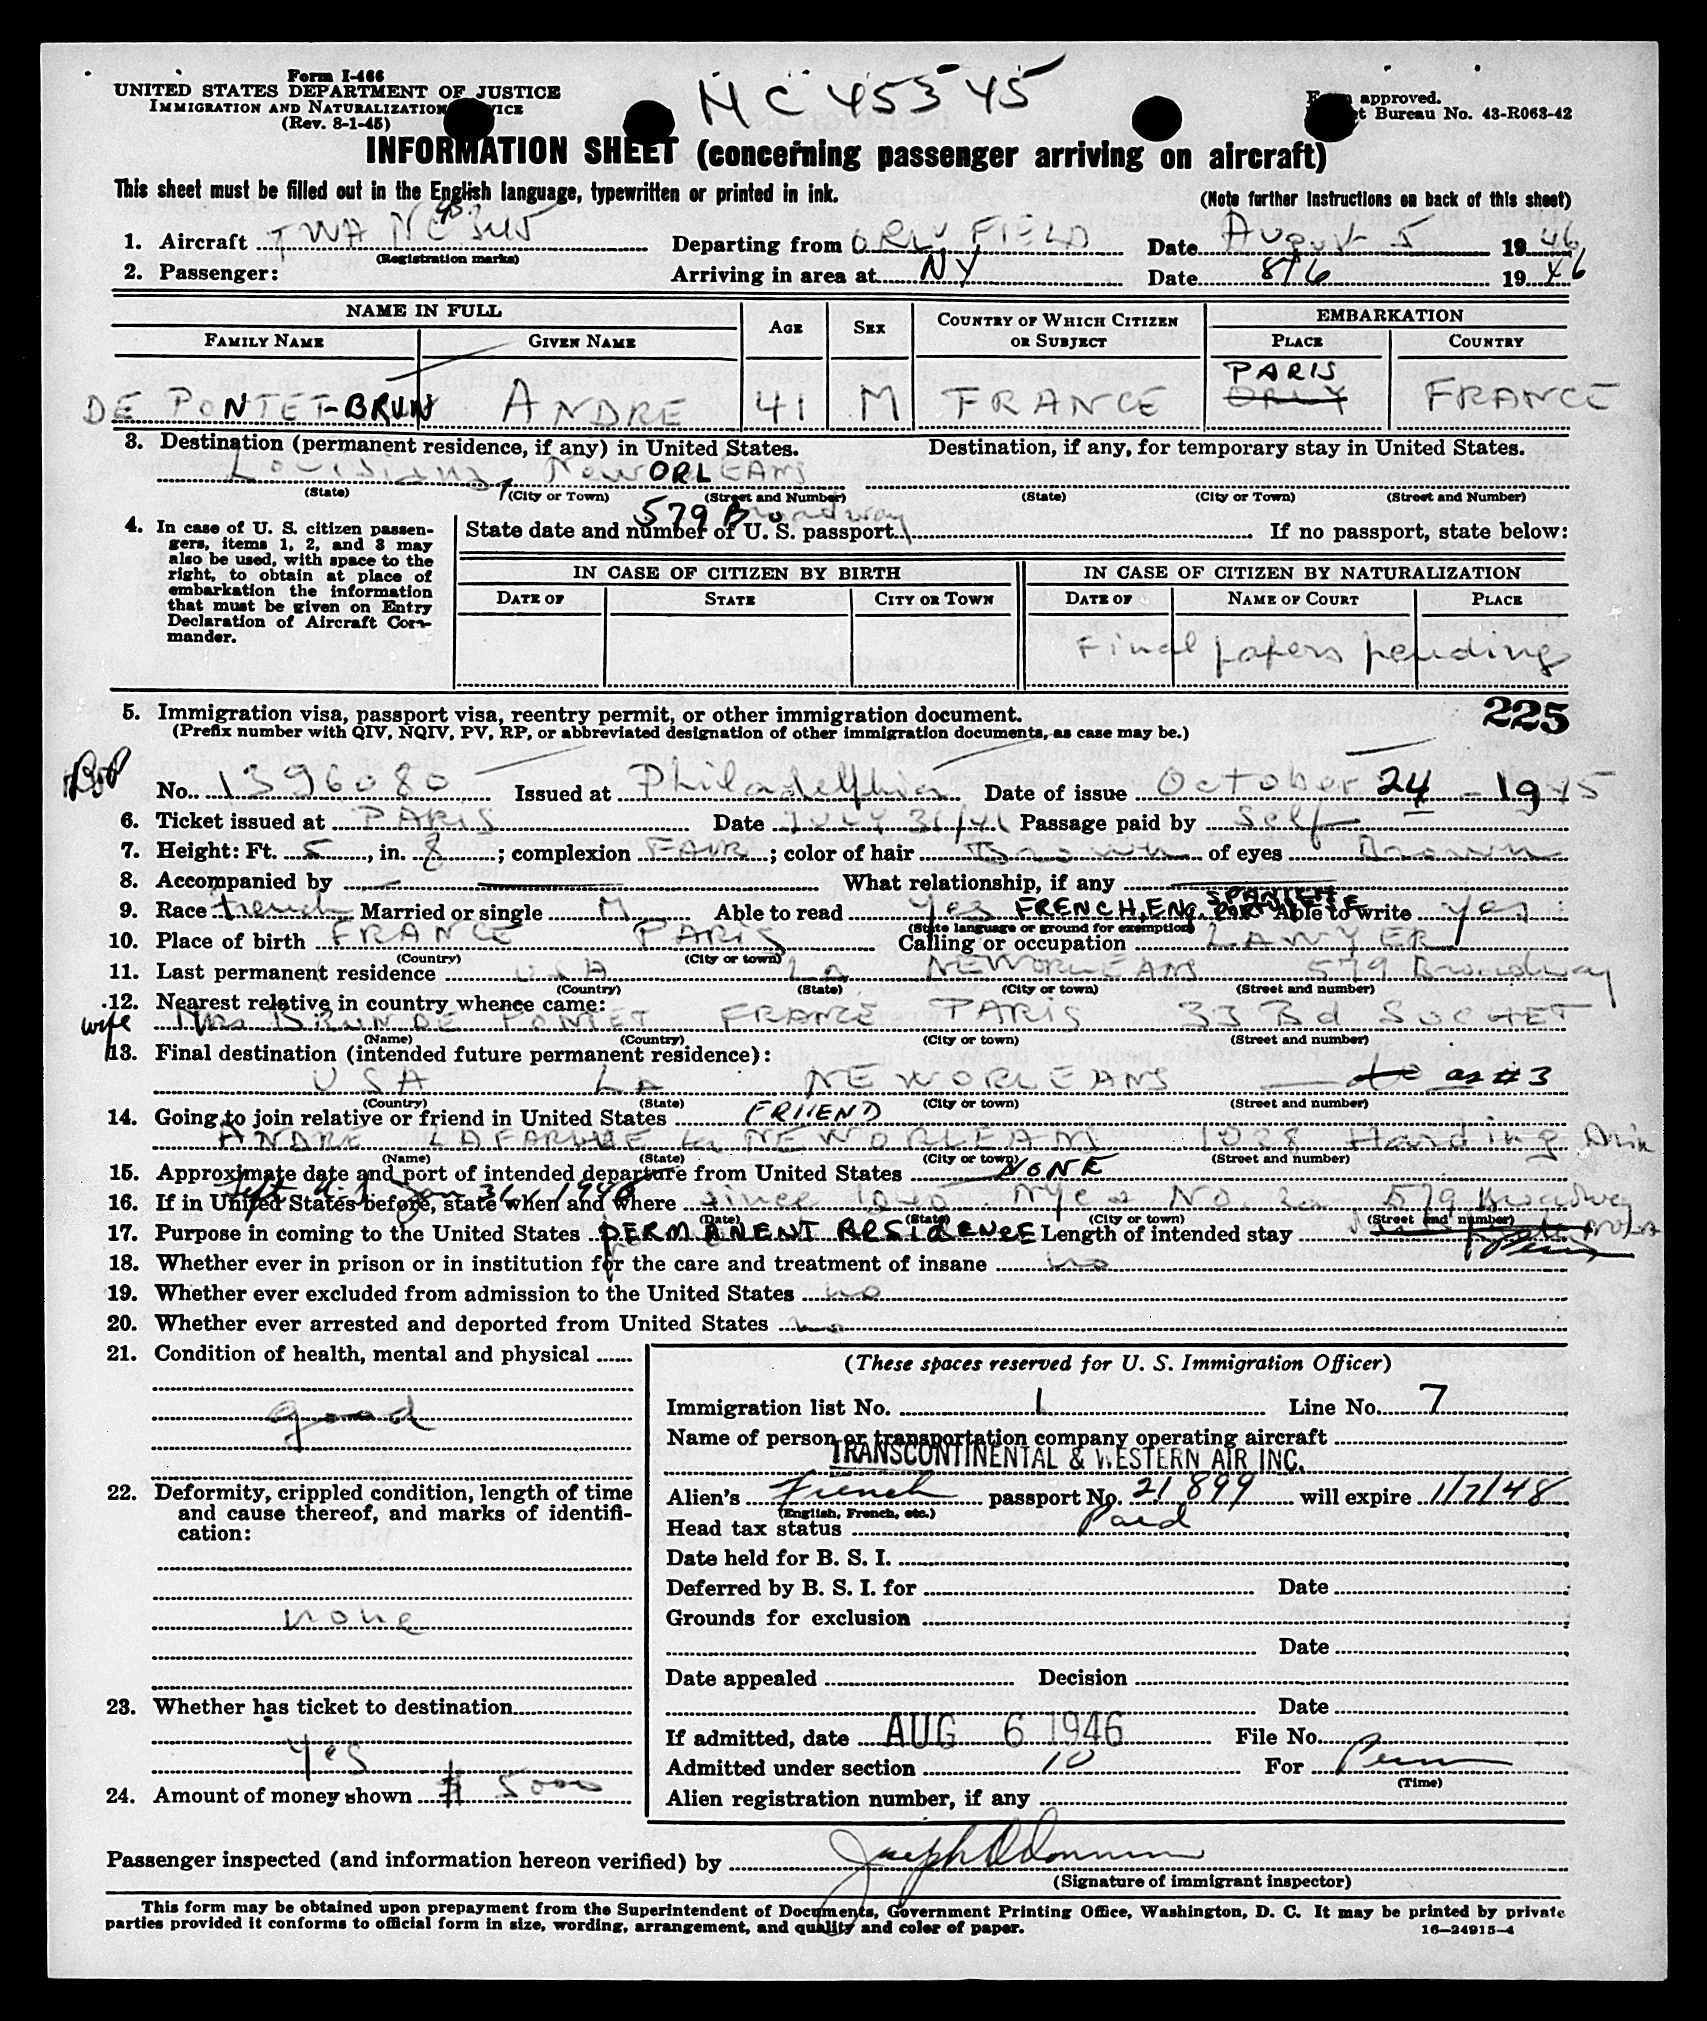 Form I-466
UNITED STATES DEPARTMENT OF JUSTICE
IMMIGRATION AND NATURALIZATION
(Rev. 8-1-45)
NC 45545
approved.
Bureau No. 43-R063-42
INFORMATION SHEET (concerning passenger arriving on aircraft)
This sheet must be filled out in the English language, typewritten or printed in ink.
(Note further instructions on back of this sheet)
1. Aircraft TWA NC Departing from ORLY FIELD Date August 5 1946
(Registration marks)
2. Passenger: Arriving in area at NY Date 8/6 1946
NAME IN FULL AGE SEX COUNTRY OF WHICH CITIZEN OR SUBJECT EMBARKATION
FAMILY NAME GIVEN NAME PLACE COUNTRY
PARIS
DE PONTET-BRUN ANDRE 41 M FRANCE ORLY FRANCE
3. Destination (permanent residence, if any) in United States. Destination, if any, for temporary stay in United States.
Louisiana, New ORLEANS
(State) (City or Town) (Street and Number) (State) (City or Town) (Street and Number)
579 Broadway
4. In case of U. S. citizen passengers, items 1, 2, and 3 may also be used, with space to the right, to obtain at place of embarkation the information that must be given on Entry Declaration of Aircraft Commander.
State date and number of U. S. passport If no passport, state below:
IN CASE OF CITIZEN BY BIRTH IN CASE OF CITIZEN BY NATURALIZATION
DATE OF STATE CITY OR TOWN DATE OF NAME OF COURT PLACE
Final papers pending
225
5. Immigration visa, passport visa, reentry permit, or other immigration document.
(Prefix number with QIV, NQIV, PV, RP, or abbreviated designation of other immigration documents, as case may be.)
No. 1396080 Issued at Philadelphia Date of issue October 24 - 1945
6. Ticket issued at PARIS Date JULY 31/46 Passage paid by Self
7. Height: Ft. 5, in. 8; complexion FAIR; color of hair Brown of eyes Brown
8. Accompanied by What relationship, if any
9. Race French Married or single M Able to read Yes FRENCH, ENG. SPANISH Able to write yes
(State language or ground for exemption)
10. Place of birth FRANCE PARIS Calling or occupation LAWYER
(Country) (City or town)
11. Last permanent residence USA LA NEW ORLEANS 579 Broadway
(Country) (State) (City or town) (Street and number)
12. Nearest relative in country whence came:
wife Mrs BRUN DE PONTET FRANCE PARIS 33 Bd SUCHET
(Name) (Country) (City or town) (Street and number)
13. Final destination (intended future permanent residence):
USA LA NEW ORLEANS as #3
(Country) (State) (City or town) (Street and number)
14. Going to join relative or friend in United States FRIEND
ANDRE LAFARGUE La NEW ORLEANS 1028 Harding Driv
(Name) (State) (City or town) (Street and number)
15. Approximate date and port of intended departure from United States NONE
16. If in United States before, state when and where since 1940 579 Broadway
(Date) (State) (City or town) (Street and number)
17. Purpose in coming to the United States PERMANENT RESIDENCE Length of intended stay Perm
18. Whether ever in prison or in institution for the care and treatment of insane no
19. Whether ever excluded from admission to the United States no
20. Whether ever arrested and deported from United States no
21. Condition of health, mental and physical
good
22. Deformity, crippled condition, length of time and cause thereof, and marks of identification:
none
23. Whether has ticket to destination
yes
24. Amount of money shown $ 5000
(These spaces reserved for U. S. Immigration Officer)
Immigration list No. 1 Line No. 7
Name of person or transportation company operating aircraft
TRANSCONTINENTAL & WESTERN AIR INC.
Alien's French passport No. 21899 will expire 1/7/48
(English, French, etc.)
Head tax status Paid
Date held for B. S. I.
Deferred by B. S. I. for Date
Grounds for exclusion
Date
Date appealed Decision
Date
If admitted, date AUG 6 1946 File No.
Admitted under section 10 For Perm
(Time)
Alien registration number, if any
Passenger inspected (and information hereon verified) by
(Signature of immigrant inspector)
This form may be obtained upon prepayment from the Superintendent of Documents, Government Printing Office, Washington, D. C. It may be printed by private
parties provided it conforms to official form in size, wording, arrangement, and quality and color of paper.
16-24915-4